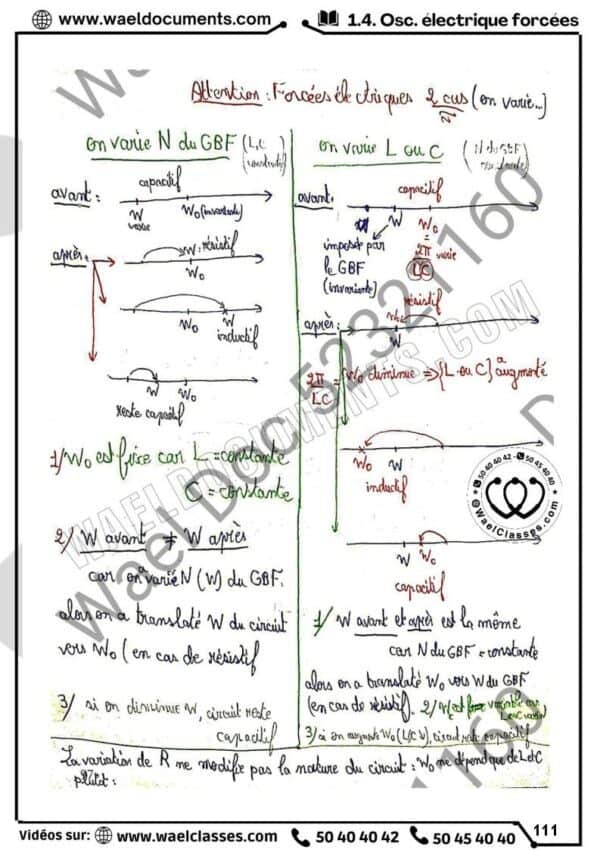 www.waeldocuments.com
1.4. Osc. électrique forcées
Attention : Forcées électriques 2 cas (on varie...)
N
on varie N du GBF (L,C constantes)
avant :
capacitif
W
varie
W₀ (invariante)
après :
W : résistif
W₀
W₀ W
inductif
W W₀
reste capacitif
1/ W₀ est fixe car L = constante
C = constante
2/ W avant ≠ W après
car on a varié N (W) du GBF.
alors on a translaté W du circuit
vers W₀ (en cas de résistif
3/ si on diminue W, circuit reste
capacitif
on varie L ou C (N du GBF
avant.
capacitif
W W₀
imposée par
le GBF
(invariante)
=
2π varie
LC
résistif
après :
W
2π = W₀ diminue ⇒ {L ou C} a augmenté
LC
W₀ W
inductif
W W₀
capacitif
1/ W avant et après est la même
car N du GBF = constante
alors on a translaté W₀ vers W du GBF
(en cas de résistif). 2/
3/ si on augmente W₀ (L/C ↓), circuit reste capacitif
La variation de R ne modifie pas la nature du circuit : W₀ ne dépend que de L et C
plutôt :
Wael Doc 52321160
WAELDOCUMENTS.COM
50 40 40 42 - 50 45 40 40
@WaelClasses.com
Vidéos sur: www.waelclasses.com 50 40 40 42 50 45 40 40
111